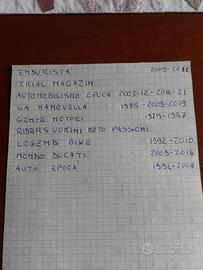 ENDURISTA 2009-2011
TRIAL MAGAZIN
AUTOMOBILISMO EPOCA 2003-12-2016-21
LA MANOVELLA 1985-2009-2019
GENTE MOTORI 1979-1987
RIDERS UOMINI MOTO PASSIONI
LEGEND BIKE 1992-2010
MONDO DUCATI 2009-2016
AUTO EPOCA 1996-2008
subito